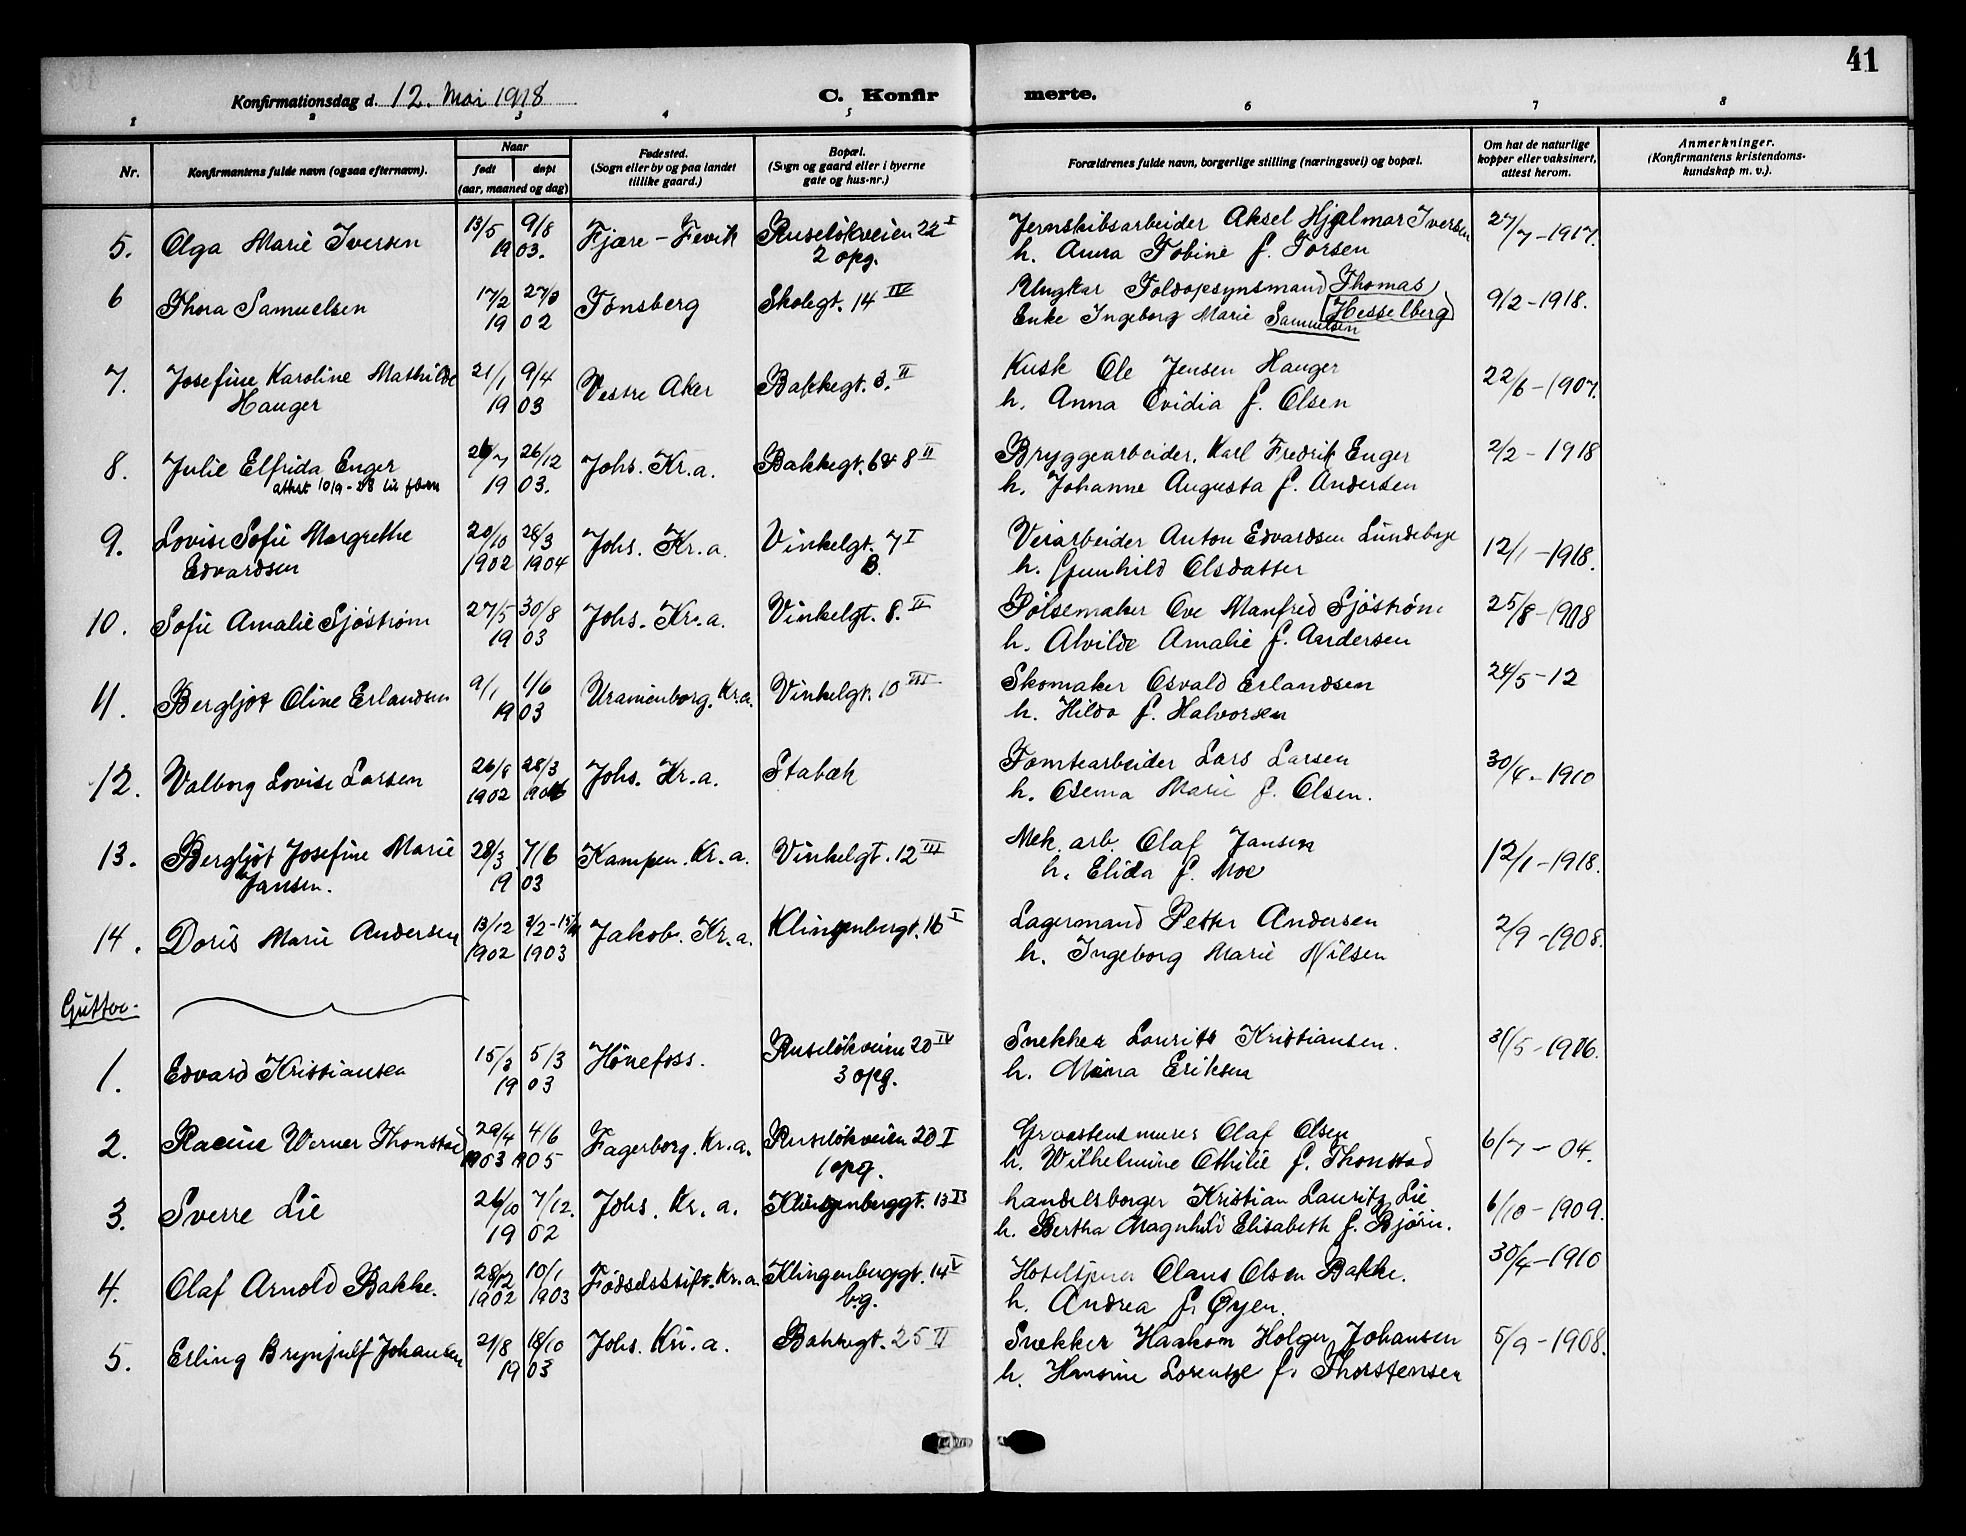 41
Konfirmationsdag d. 12. Mai 1918
C. Konfirmerte.
1 2 3 4 5 6 7 8
Nr. Konfirmantens fulde navn (ogsaa efternavn). Naar født døpt (aar, maaned og dag) Fødested. (Sogn eller by og paa landet tillike gaard.) Bopæl. (Sogn og gaard eller i byerne gate og hus-nr.) Forældrenes fulde navn, borgerlige stilling (næringsvei) og bopæl. Om hat de naturlige kopper eller vaksinert, attest herom. Anmerkninger. (Konfirmantens kristendoms-kundskap m. v.).
5. Olga Marie Iversen 13/5 9/8 1903. Fjære - Fevik Ruseløkveien 22 I 2 opg. Jernskibsarbeider Aksel Hjalmar Iversen 27/7-1917.
h. Anna Tobine f. Torsen
6 Thora Samuelsen 17/2 27/3 1902 Tønsberg Skolegt. 14 IV Ungkar Toldopsynsmand Thomas Hesselberg 9/2-1918.
Enke Ingeborg Marie Samuelsen
7. Josefine Karoline Mathilde Hauger 21/1 9/4 1903 Vestre Aker Bakkegt. 3. II Kusk Ole Jensen Hauger 22/6-1907.
h. Anna Ovidia f. Olsen
8. Julie Elfrida Enger 26/7 26/12 1903. Johs. Kr.a. Bakkegt. 6 & 8 II Bryggearbeider. Karl Fredrik Enger 2/2-1918
attest 10/9-28
h. Johanne Augusta f. Andersen
9. Lovise Sofie Margrethe Edvardsen 20/10 1902 28/3 1904 Johs. Kr.a. Vinkelgt. 7 I B. Veiarbeider Anton Edvardsen Lundebye 12/1-1918.
h. Gunhild Olsdatter
10. Sofie Amalie Sjøstrøm 27/5 30/8 1903 Johs. Kr.a. Vinkelgt. 8. II Pølsemaker Ove Manfred Sjøstrøm 25/8-1908
h. Alvilde Amalie f. Andersen
11. Bergljot Oline Erlandsen 9/1 1/6 1903 Uranienborg. Kr.a. Vinkelgt. 10 III Skomaker Osvald Erlandsen 24/5-12
h. Hilda f. Halvorsen
12. Valborg Lovise Larsen 26/8 1902 28/3 Johs. Kr.a. Stabæk Tomtearbeider Lars Larsen 30/4-1910
h. Osema Marie f. Olsen.
13. Bergljot Josefine Marie Jansen. 28/3 7/6 1903 Kampen. Kr.a. Vinkelgt. 12 III Mek. arb. Olaf Jansen 12/1-1918.
h. Elida f. Moe
14. Doris Marie Andersen 13/12 1902 1903 Jakob. Kr.a. Klingenbergt. 16 I Lagermand Petter Andersen 2/9-1908.
h. Ingeborg Marie Nilsen
Gutter.
1. Edvard Kristiansen 15/2 5/3 1903 Hönefoss. Ruseløkveien 20 IV 3 opg. Snekker Laurits Kristiansen. 31/5-1906.
h. Mina Eriksen
2. Racine Werner Thonstad 29/4 1903 4/6 1905 Fagerborg. Kr.a. Ruseløkveien 20 I 1 opg. Graastensmurer Olaf Olsen 6/7-04.
h. Wilhelmine Othilie f. Thonstad
3. Sverre Lie 26/10 7/12. 1902 Johs. Kr.a. Klingenberggt. 13 II handelsborger Kristian Lauritz Lie 6/10-1909.
h. Bertha Magnhild Elisabeth f. Bjørn.
4. Olaf Arnold Bakke. 28/12 1902 10/1 1903 Fødselsstift. Kr.a. Klingenberggt. 14 V b.g. Hoteltjener Claus Olsen Bakke. 30/4-1910
h. Andrea f. Øyen.
5. Erling Brynjulf Johansen 21/8 18/10 1903 Johs. Kr.a. Bakkegt. 25 II Snekker Haakon Holger Johansen 5/9-1908.
h. Hansine Lorentze f. Thorstensen